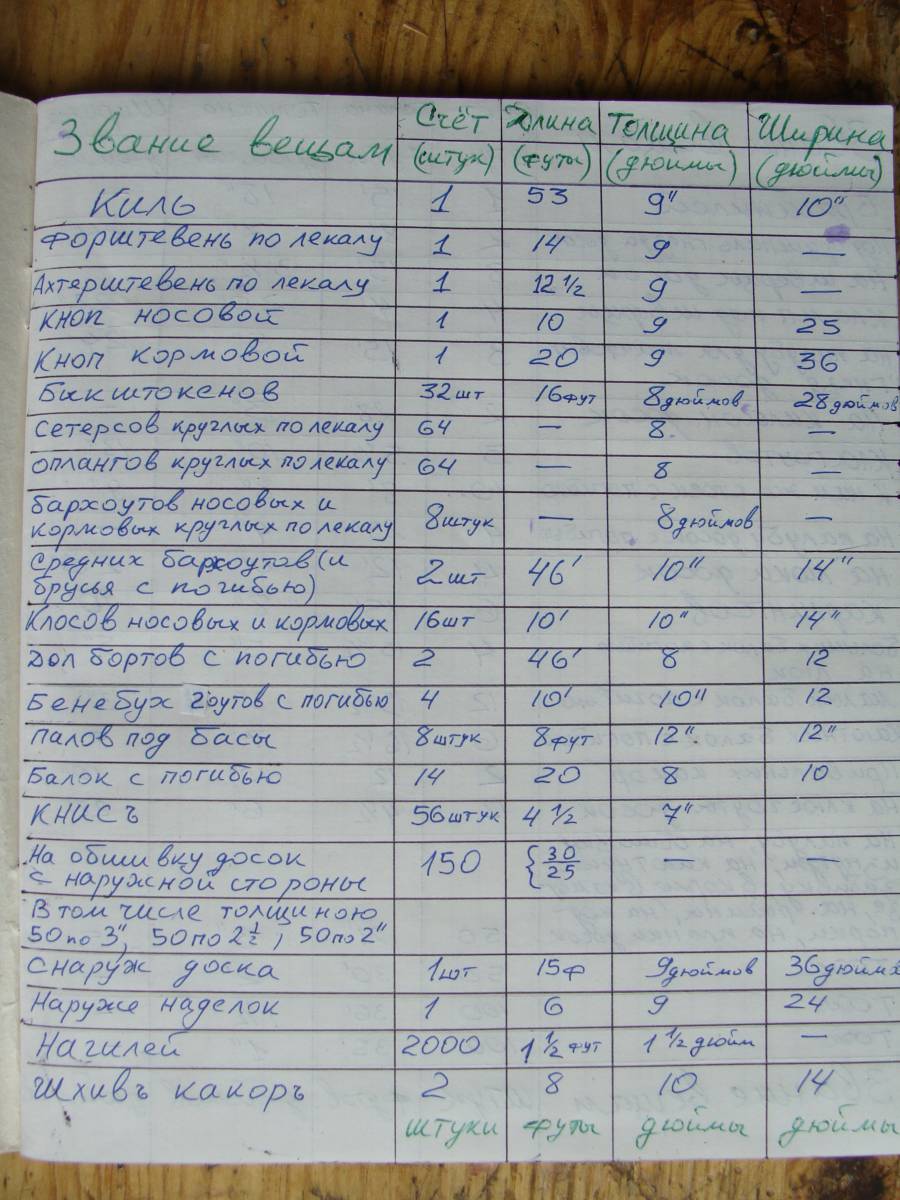 Звание вещам Счёт (штук) Длина (футы) Толщина (дюймы) Ширина (дюймы)
Киль 1 53 9" 10"
Форштевень по лекалу 1 14 9 —
Ахтерштевень по лекалу 1 12 1/2 9 —
Кноп носовой 1 10 9 25
Кноп кормовой 1 20 9 36
Бикштокенов 32 шт 16 фут 8 дюймов 28 дюймов
Сетерсов круглых по лекалу 64 — 8 —
оплангов круглых по лекалу 64 — 8 —
бархоутов носовых и
кормовых круглых по лекалу 8 штук — 8 дюймов —
Средних бархоутов (и
брусья с погибью) 2 шт 46' 10" 14"
Клосов носовых и кормовых 16 шт 10' 10" 14"
Дол бортов с погибью 2 46' 8 12
Бенебух гоутов с погибью 4 10' 10" 12
палов под басы 8 штук 8 фут 12" 12"
Балок с погибью 14 20 8 10
КНИСЪ 56 штук 4 1/2 7"
На обшивку досок
с наружной стороны 150 { 30/25 — —
В том числе толщиною
50 по 3", 50 по 2 1/2, 50 по 2"
Снаруж доска 1 шт 15 ф 9 дюймов 36 дюймов
Наруже наделок 1 6 9 24
Нагилей 2000 1 1/2 фут 1 1/2 дюйм —
Шхивъ какоръ 2 8 10 14
штуки футы дюймы дюймы